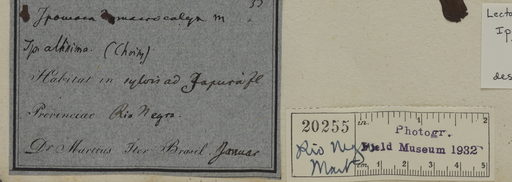 Ipomoea macrocalyx m
Ip. altissima. (Choisy)
Habitat in sylvis ad Japurá fl
Provinciae Rio Negro.
Dr Martius Iter Brasil. Januar
20255
in.
1
2
3
4
5
Photogr.
Field Museum 1932
Rio Negro
Mart
Lecto
Ip
des